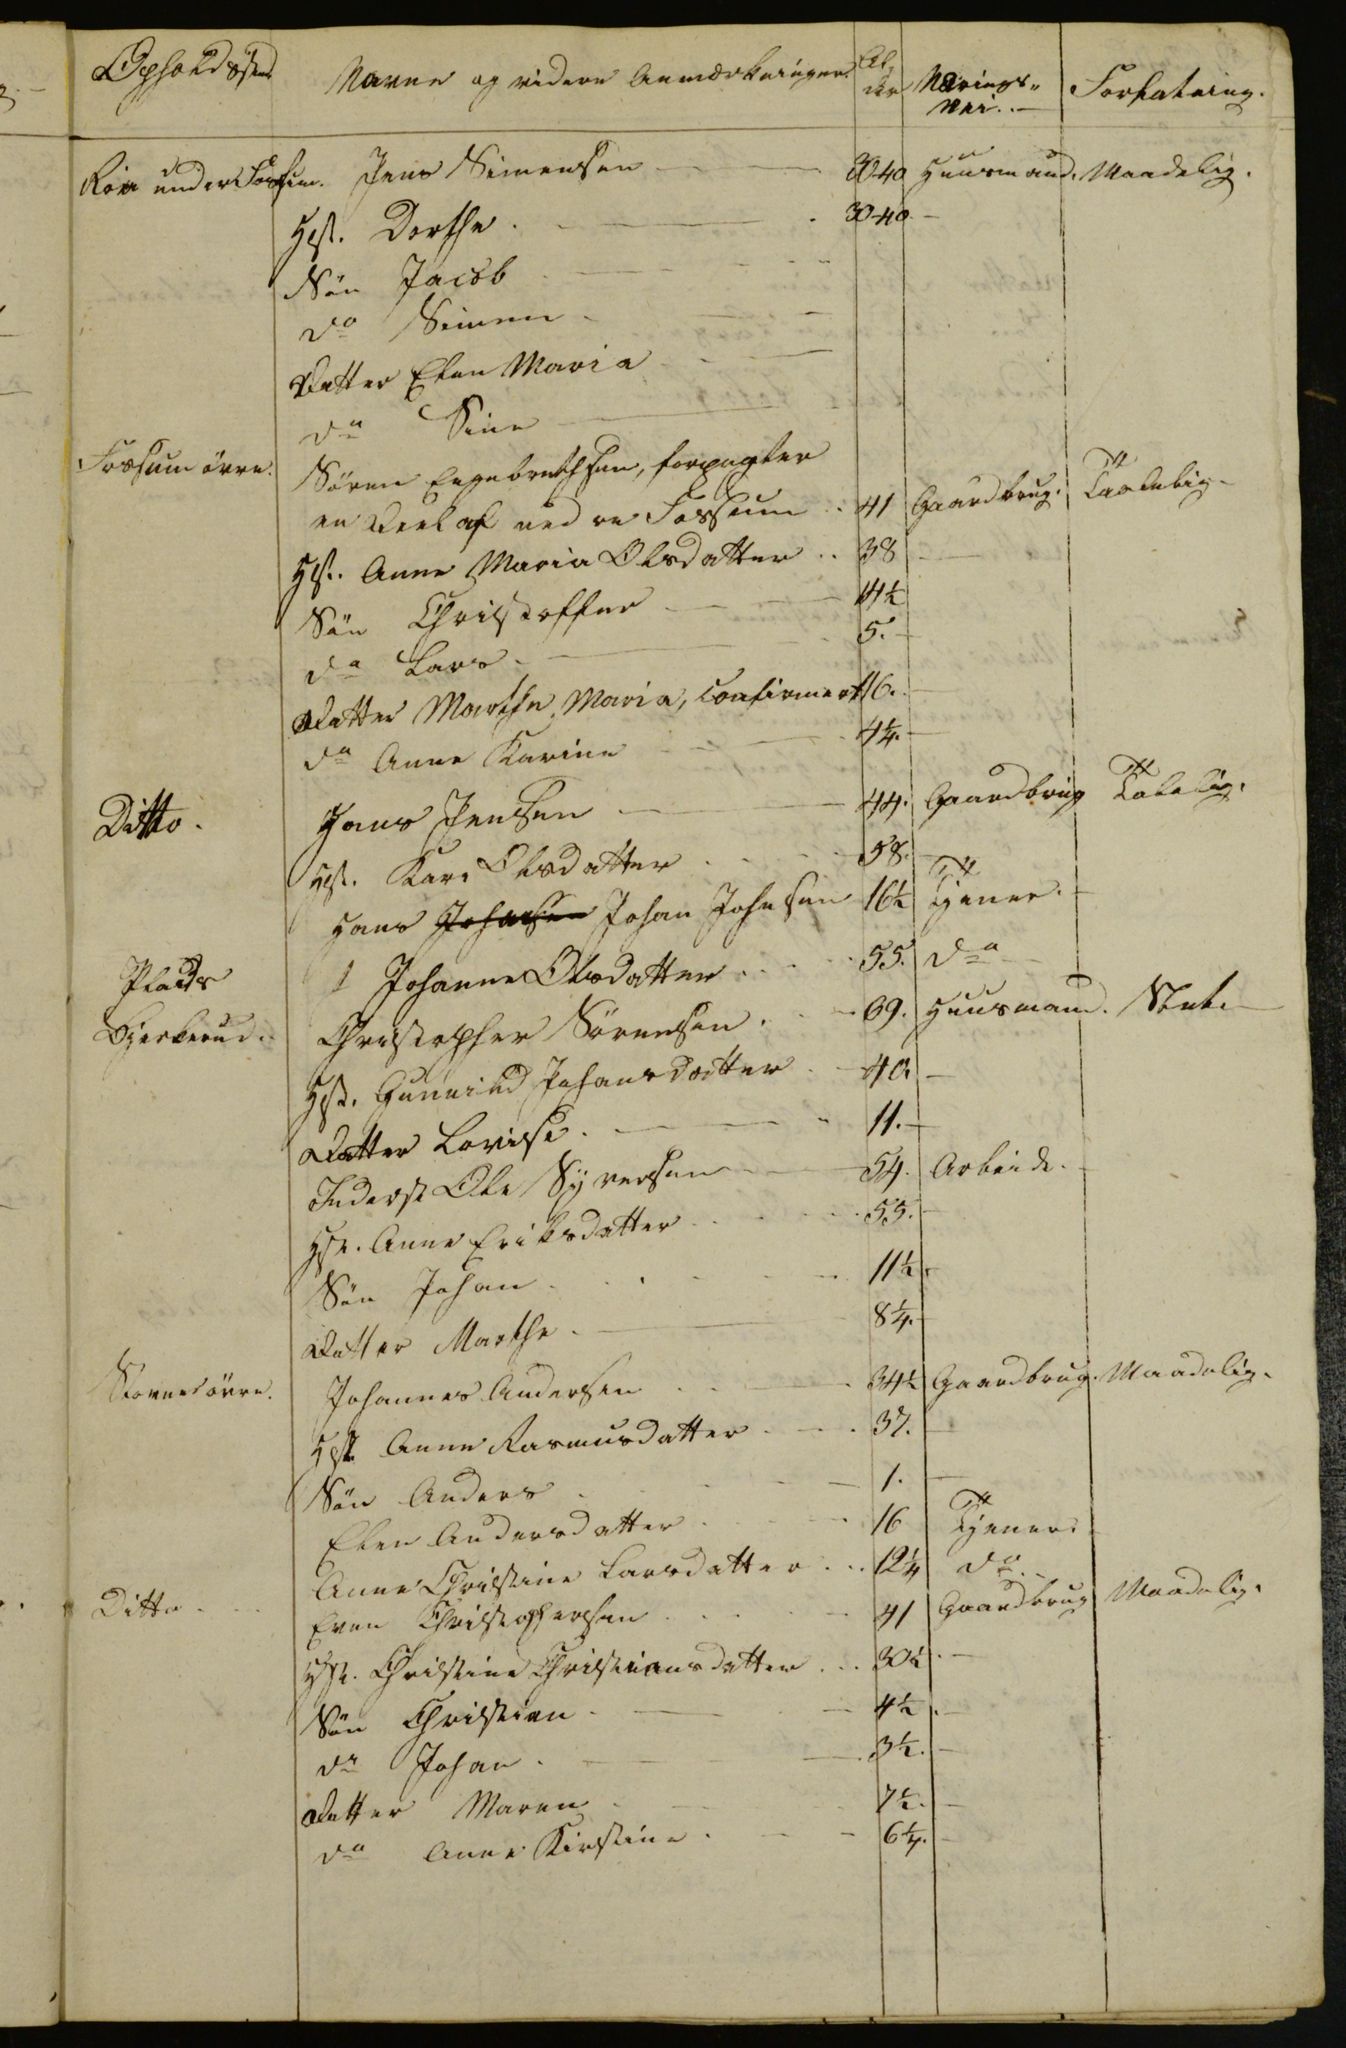 Opholdssted Navne og videre Anmærkninger. Al-der Nærings-vei. Forfatning.
Röa under Fossum. Jens Simensen 30-40 Huusmand. Maadelig.
Hst. Dorthe 30-40
Søn Jacob
do Simen
Datter Elen Maria
do Sine
Fossum övre. Sören Engebrethsen, forpagter
en Deel af nedre Fossum 41 Gaardbrug. Taalelig
Hst. Anne Maria Olsdatter 38
Søn Christoffer
do Lars 5.
Datter Marthe Maria, confirmert 16.
do Anne Karine 4¼.
Ditto. Hans Jensen 44. Gaardbrug Taalelig.
Hst. Kari Olsdatter 58.
Hans Johansen Johan Johnsen 16½ Tjener.
Johanne Olsdatter 55. do
Plads Bjerkerud. Christopher Sörensen 69. Huusmand. Slet.
Hst. Gunnild Johansdatter 40.
Datter Lovise 11.
Inderst Ole Syversen 54. Arbeide.
Hst. Anne Eriksdatter 55.
Søn Johan 11½.
Datter Marthe 8¼.
Stovner övre. Johannes Andersen 34½ Gaardbrug. Maadelig.
Hst. Anne Rasmusdatter 37.
Søn Anders 1.
Elen Andersdatter 16 Tjener.
Anne Christine Larsdatter 12¼ do
Ditto Even Christophersen 41 Gaardbrug Maadelig.
Hst. Christine Christiansdatter 30½
Søn Christian 4½
do Johan 3½.
Datter Maren 7½.
do Anne Kirstine 6¼.